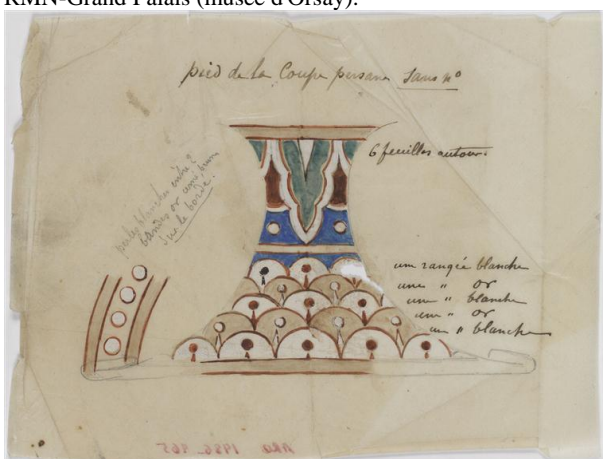 RMN-Grand Palais (musée d'Orsay).
pied de la Coupe persane Sans nº
6 feuilles autour.
perles blanches entre 2
bandes or
sur le bord.
une rangée blanche
une " or
une " blanche
une " or
une " blanche
ARO 1986 965